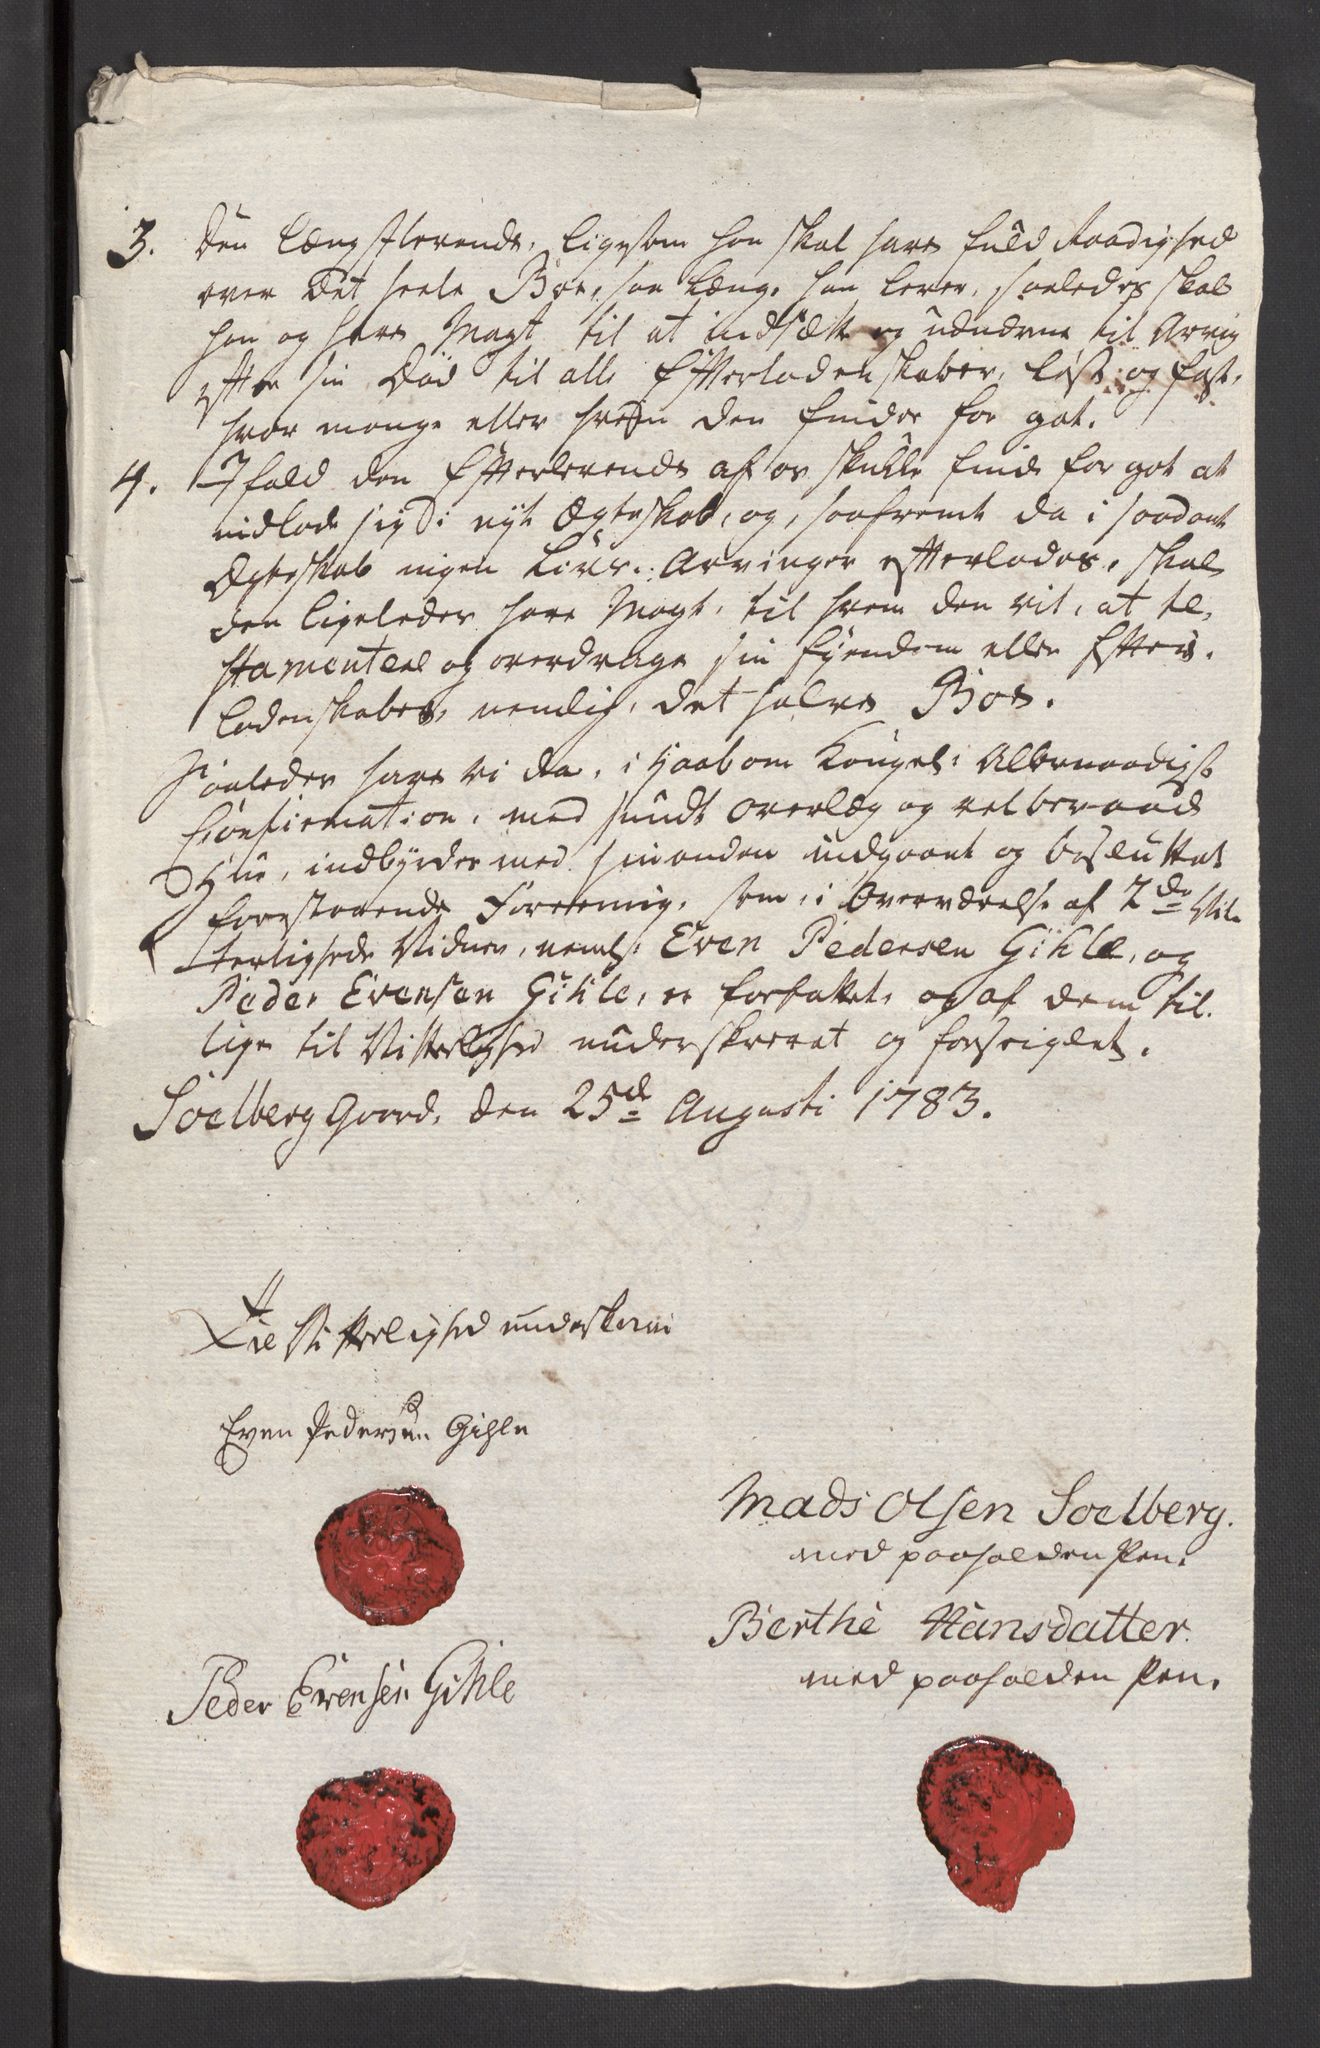 3. Den Længstlevende, ligesom han skal have fuld Raadighed
over det heele Boe, saa længe han lever, saaledes skal
han og have Magt til at indsætte og udnævne til Arving
efter sin Død til alle Efterladenskaber, løst og fast,
hvor mange eller hvem den finder for got.
4. Ifald den Efterlevende af os skulle finde for got at
indlade sig i nyt Ægteskab, og, saafremt da i saadant
Ægteskab ingen Livs-Arvinger efterlades, skal
den ligeledes have Magt, til hvem den vil, at te,
stamentere og overdrage sin Ejendom eller Efter,
ladenskaber, nemlig, det halve Boe.
Saaledes have vi da, i Haab om Kongel: Allernaadigst
Confirmation, med sundt Overlæg og velberaad
Hue, indbyrdes med hinanden indgaaet og besluttet
forestaaende Foreening, som, i Overværelse af 2de Vit-
terligheds Vidner, neml: Even Pedersen Gihle, og
Peder Evensen Gihle, er forfattet, og af dem til.
lige til Vitterlighed underskrevet og forseiglet.
Soelberg Gaard, den 25de Augusti 1783.
Til Vitterlighed underskriver
Even Pedersen Gihle
Mads Olsen Soelberg.
med paaholden Pen.
Berthe Hansdatter.
med paaholden Pen.
Peder Evensen Gihle